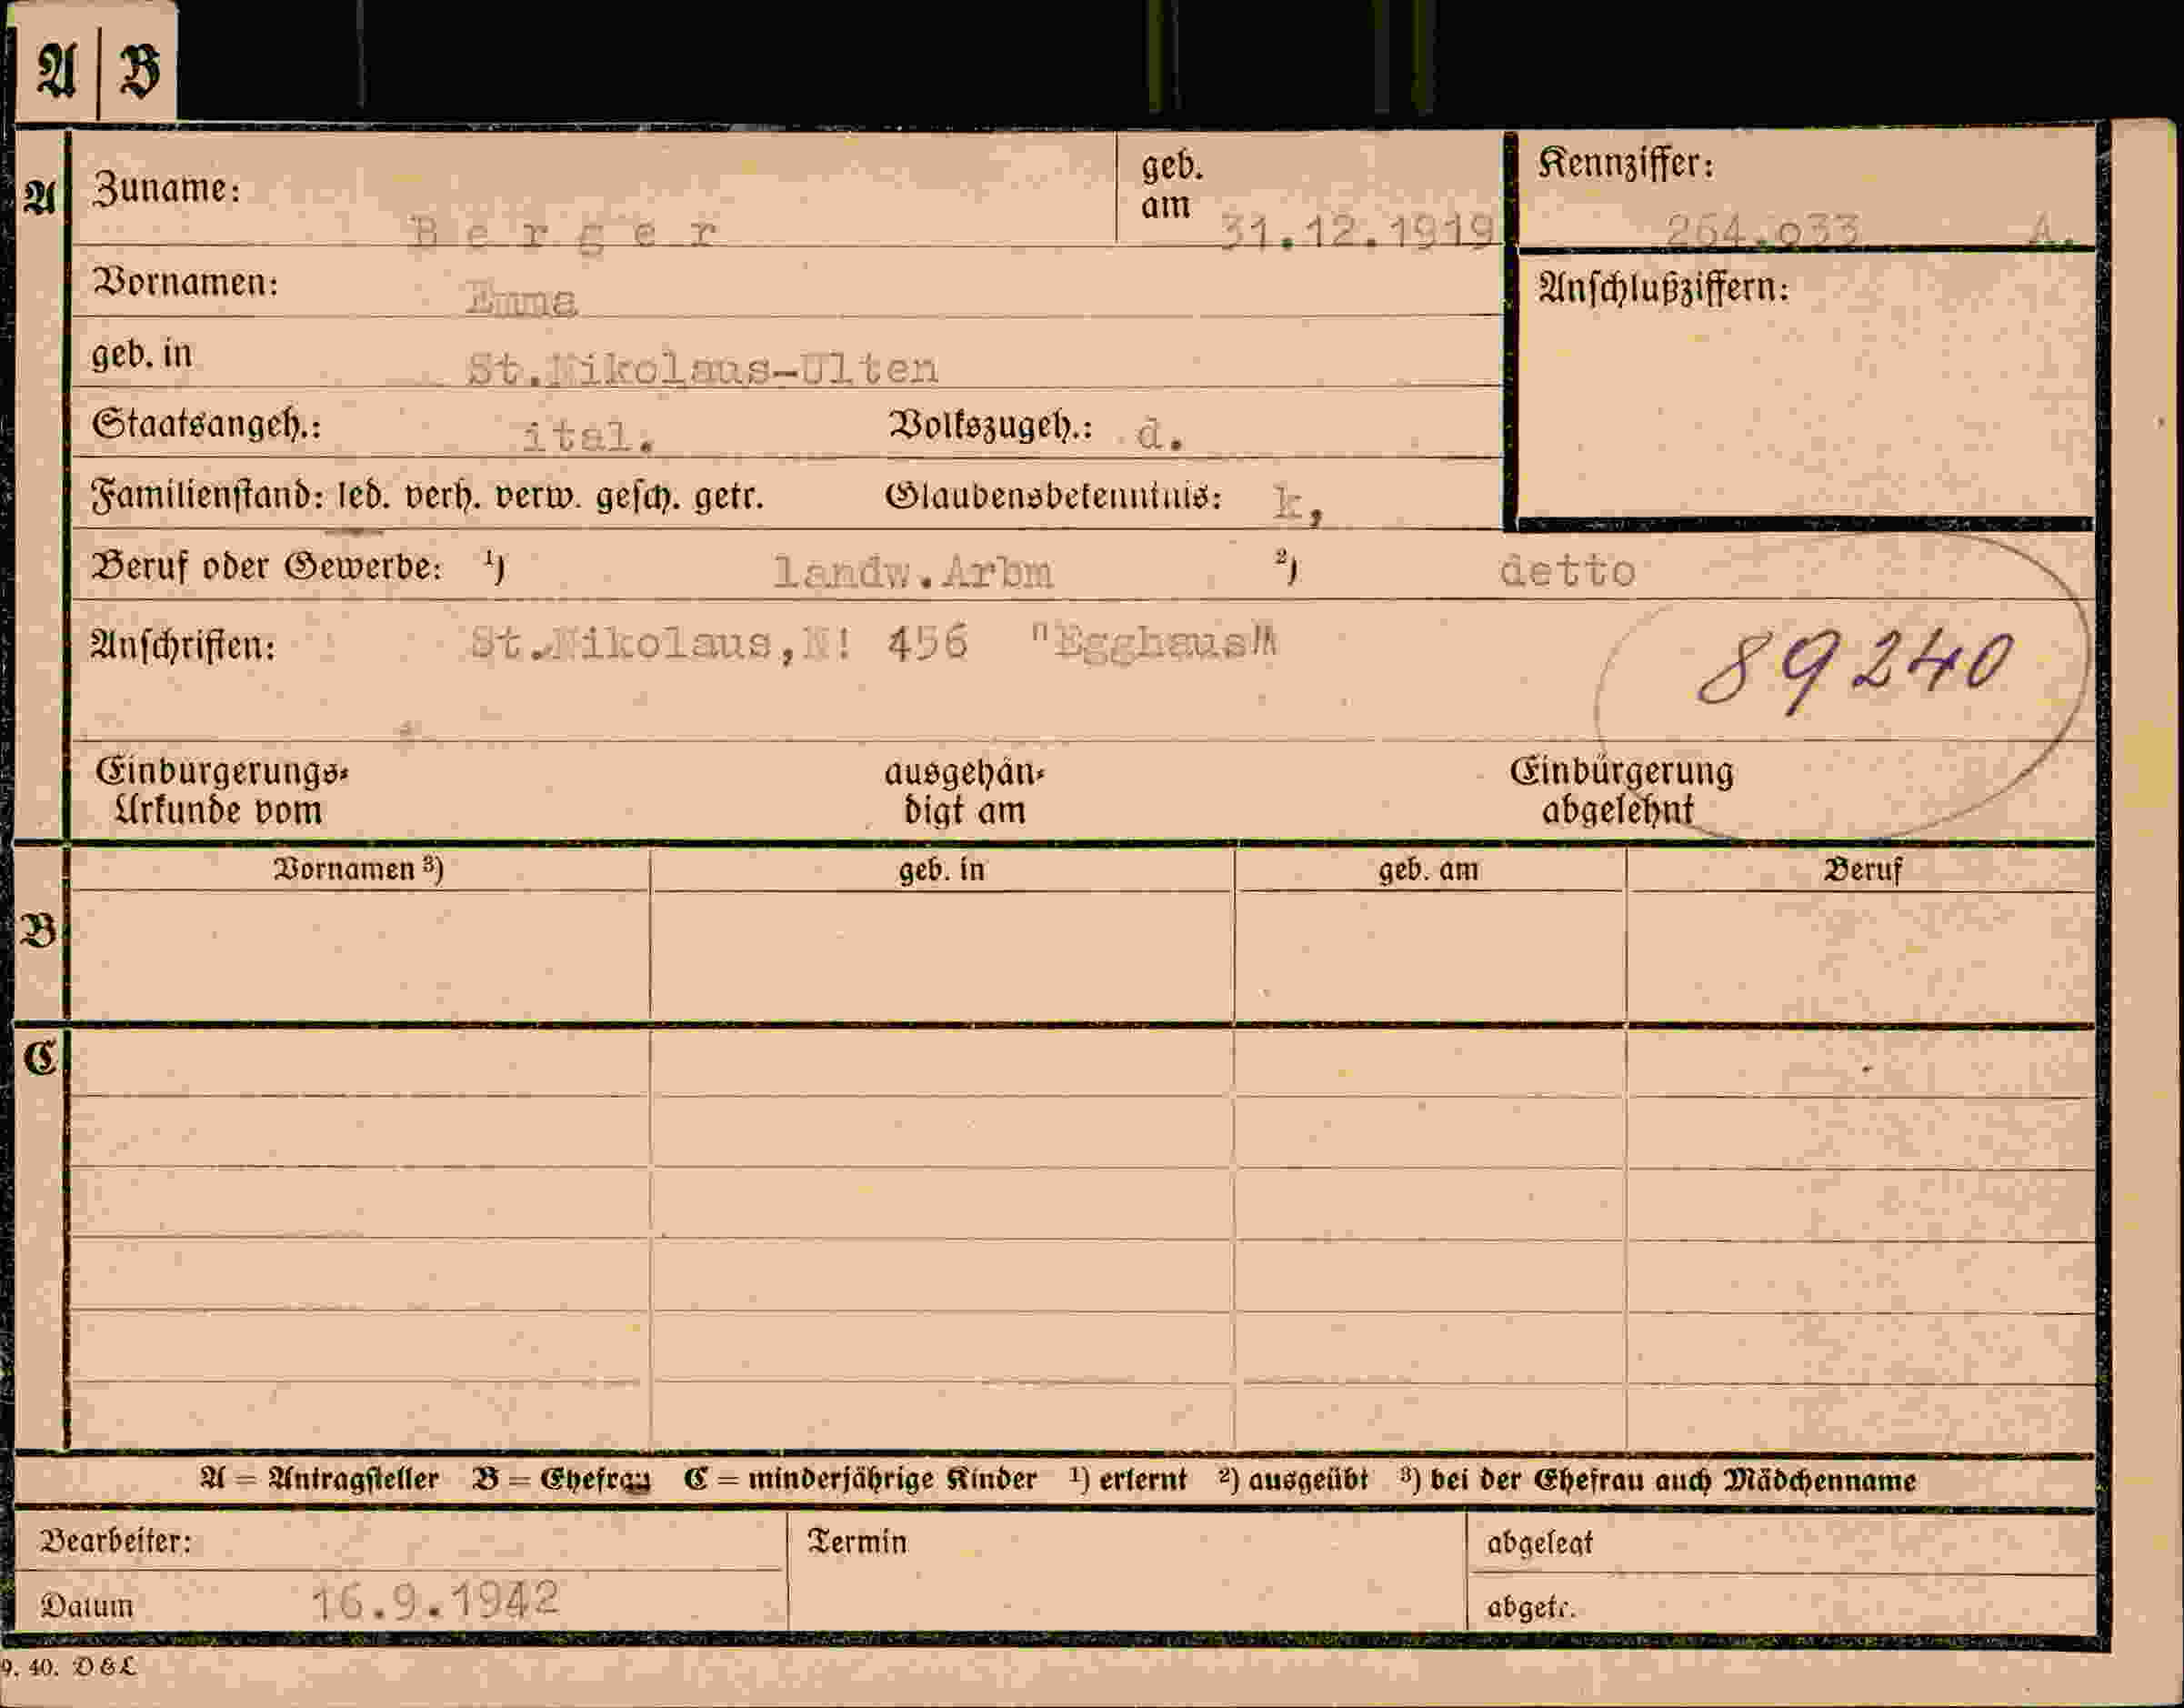 A | B
A Zuname: Berger geb. am 31.12.1919 Kennziffer: 264.o33 A.
Vornamen: Emma Anschlußziffern:
geb. in St.Nikolaus-Ulten
Staatsangeh.: ital. Volkszugeh.: d.
Familienstand: led. verh. verw. gesch. getr. Glaubensbekenntnis: k,
Beruf oder Gewerbe: ¹) landw.Arbm ²) detto
Anschriften: St.Nikolaus,N! 456 "Egghaus"
89240
Einbürgerungs- ausgehän- Einbürgerung
Urkunde vom digt am abgelehnt
Vornamen ³) geb. in geb. am Beruf
B
C
A = Antragsteller B = Ehefrau C = minderjährige Kinder ¹) erlernt ²) ausgeübt ³) bei der Ehefrau auch Mädchenname
Bearbeiter: Termin abgelegt
Datum 16.9.1942 abgetr.
9. 40. D & L